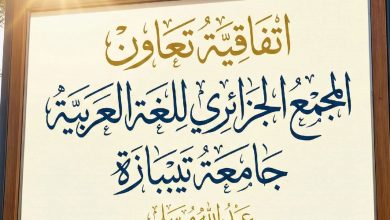 اتفاقيّة تعاون
المجمع الجزائري للغة العربيّة
جامعة تيبازة
عبد الله